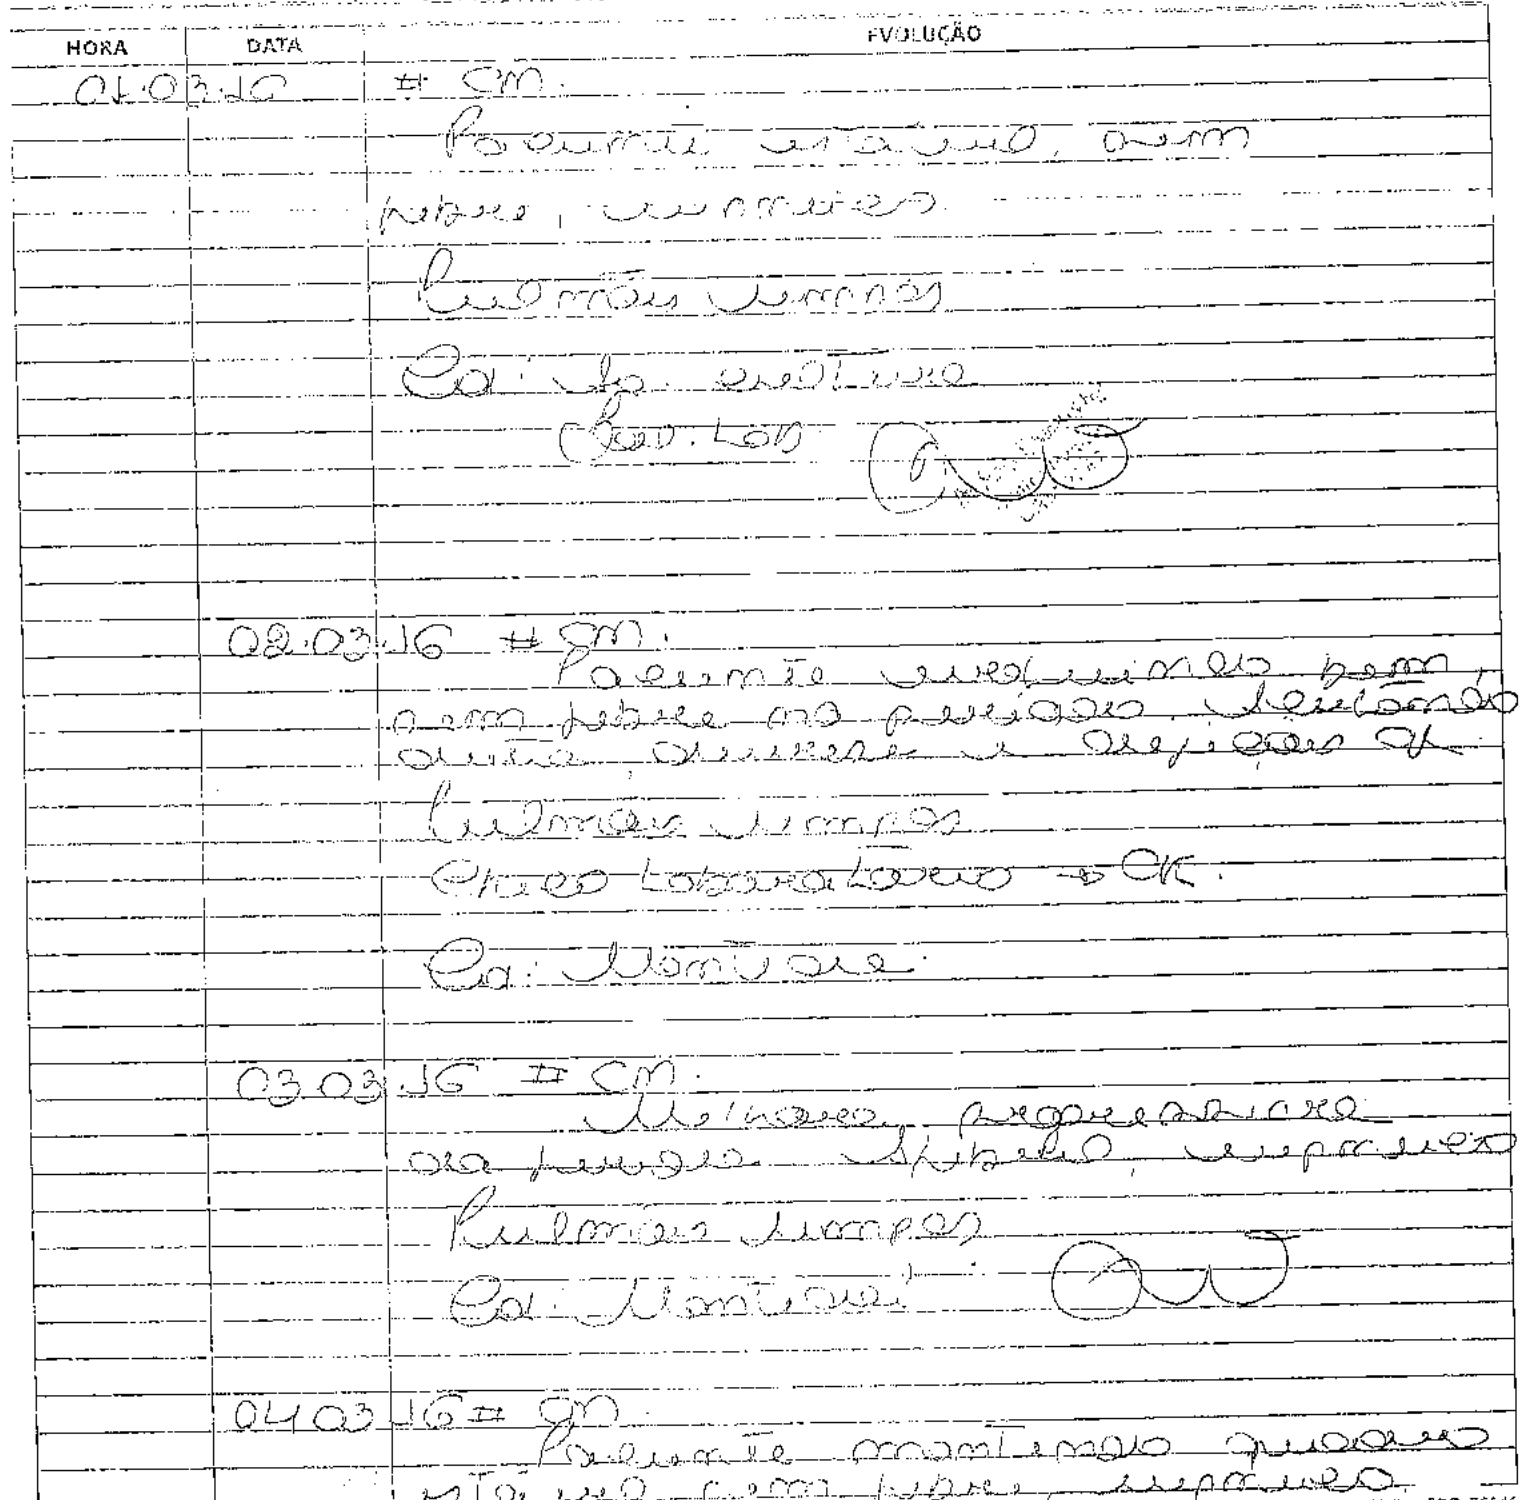 HORA DATA EVOLUÇÃO
01.03.16 # CM.
Paciente estável, sem
febre, eupneico.
Pulmões limpos
Cd:
Sol. Lab
02.03.16 # CM.
Paciente evoluindo bem,
sem febre no período. Aceitando
dieta, diurese e dejeções OK.
Pulmões limpos
Checo Laboratório → OK.
Cd: Mantida.
03.03.16 # CM.
Melhora progressiva
Afebril, eupneico
Pulmões limpos
Cd: Mantida
04.03.16 # CM.
Paciente mantendo quadro
estável sem febre, eupneico.